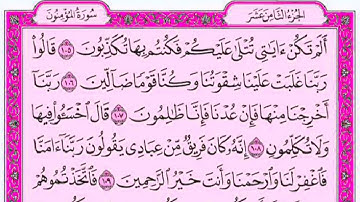 الجزء الثامن عشر
سورة المؤمنون
أَلَمْ تَكُنْ ءَايَٰتِى تُتْلَىٰ عَلَيْكُمْ فَكُنتُم بِهَا تُكَذِّبُونَ ١٠٥ قَالُوا۟
رَبَّنَا غَلَبَتْ عَلَيْنَا شِقْوَتُنَا وَكُنَّا قَوْمًا ضَآلِّينَ ١٠٦ رَبَّنَآ
أَخْرِجْنَا مِنْهَا فَإِنْ عُدْنَا فَإِنَّا ظَٰلِمُونَ ١٠٧ قَالَ ٱخْسَـُٔوا۟ فِيهَا
وَلَا تُكَلِّمُونِ ١٠٨ إِنَّهُۥ كَانَ فَرِيقٌ مِّنْ عِبَادِى يَقُولُونَ رَبَّنَآ ءَامَنَّا
فَٱغْفِرْ لَنَا وَٱرْحَمْنَا وَأَنتَ خَيْرُ ٱلرَّٰحِمِينَ ١٠٩ فَٱتَّخَذْتُمُوهُمْ